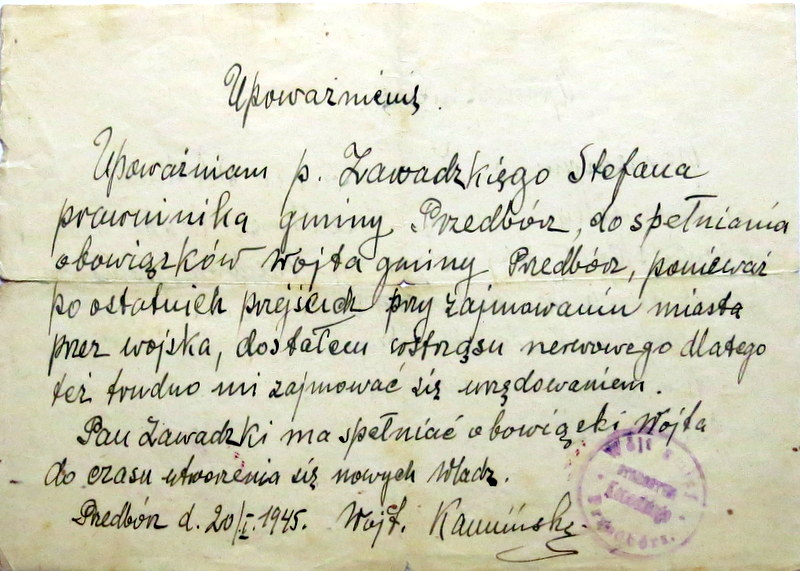 Upoważnienię.
Upoważniam p. Zawadzkięgo Stefana
prawninika gminy Przedbórz, do spełniania
obowiązków Wojta gminy Przedbórz, ponieważ
po ostatnich przejściach przy zajmowaniu miasta
przez wojska, dostałem wstrząsu nerwowego dlatego
też trudno mi zajmować się urzędowaniem.
Pan Zawadzki ma spełniać obowiązki Wojta
do czasu utworzenia się nowych Władz.
Przedbórz d. 20/I.1945. Wójt. Kamiński